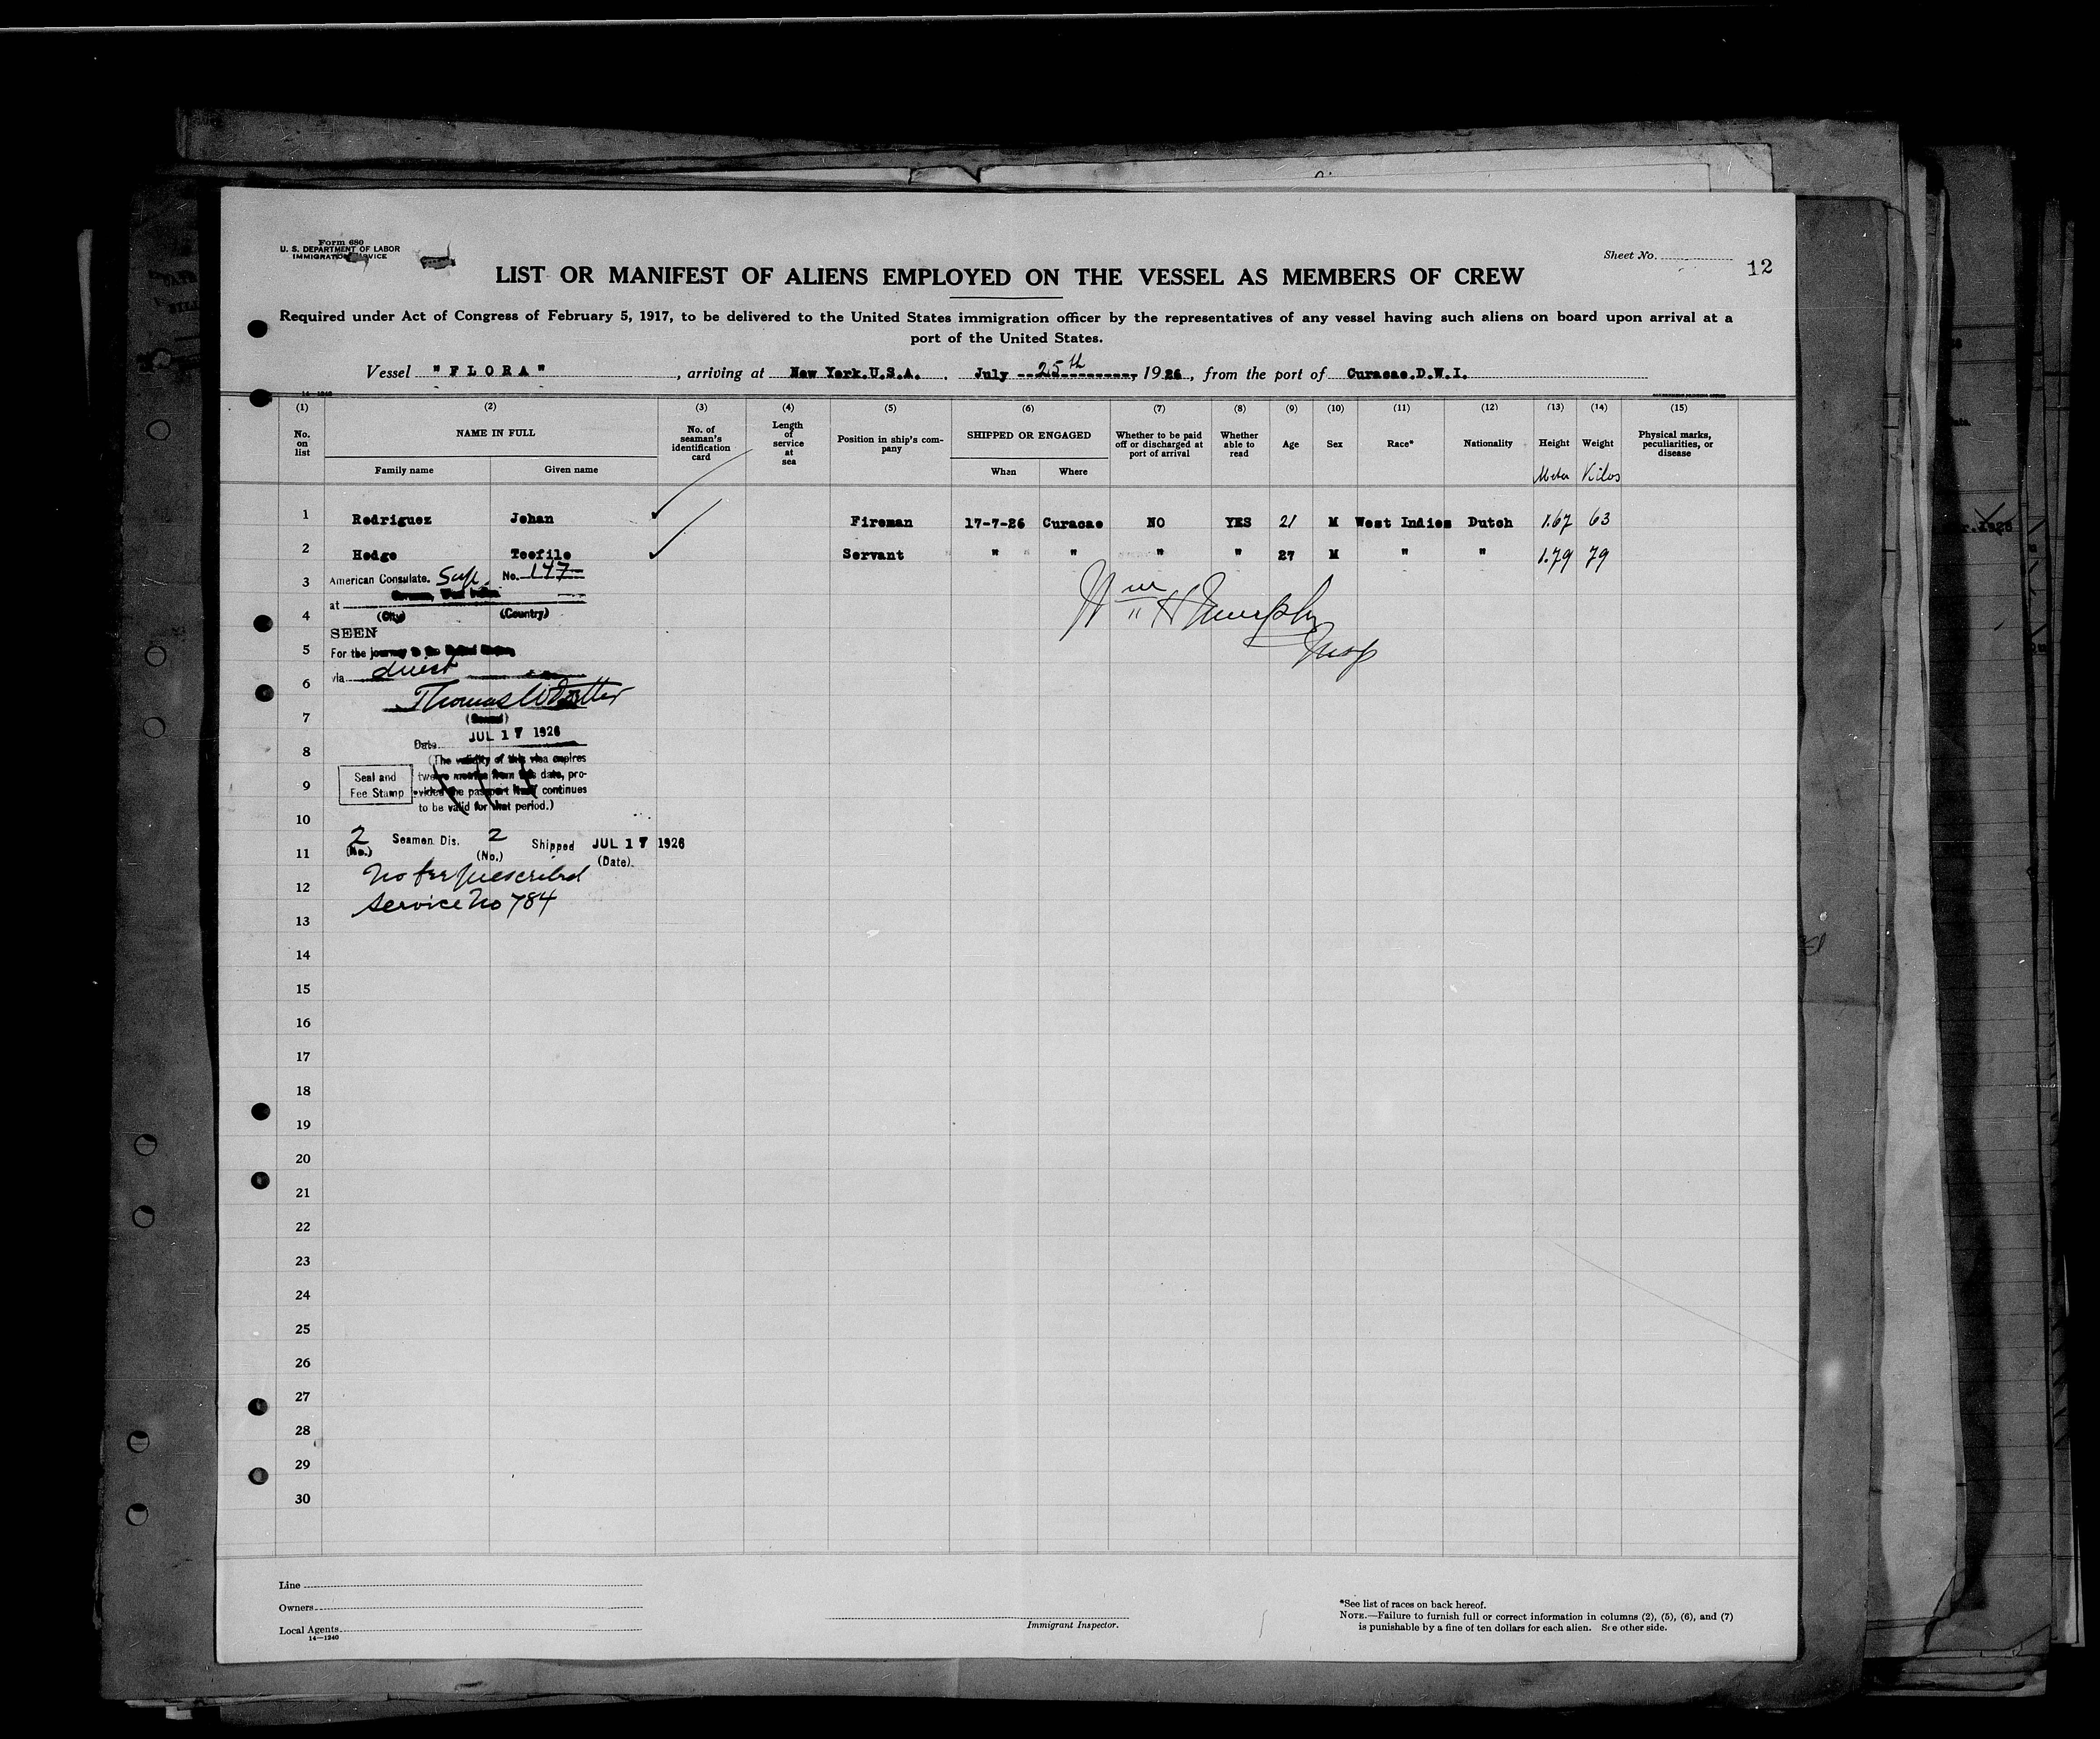 Form 680
U. S. DEPARTMENT OF LABOR
IMMIGRATION SERVICE
Sheet No.
12
LIST OR MANIFEST OF ALIENS EMPLOYED ON THE VESSEL AS MEMBERS OF CREW
Required under Act of Congress of February 5, 1917, to be delivered to the United States immigration officer by the representatives of any vessel having such aliens on board upon arrival at a
port of the United States.
Vessel "FLORA", arriving at New York.U.S.A. July 25th, 1926, from the port of Curacao.D.W.I.
(1) (2) (3) (4) (5) (6) (7) (8) (9) (10) (11) (12) (13) (14) (15)
No. on list
NAME IN FULL
Family name Given name
No. of seaman's identification card
Length of service at sea
Position in ship's company
SHIPPED OR ENGAGED
When Where
Whether to be paid off or discharged at port of arrival
Whether able to read
Age Sex Race* Nationality Height Weight
Physical marks, peculiarities, or disease
Meter Kilos
1 Rodriguez Johan Fireman 17-7-26 Curacao NO YES 21 M West Indies Dutch 1.67 63
2 Hodge Teofilo Servant " " " " 27 M " " 1.79 79
3 American Consulate. No. 147
at
4 (City) (Country)
SEEN
5 For the journey to the United States,
via direct
6
7
Wm H Murphy
Insp
Date JUL 17 1926
8 (The validity of this visa expires
twelve months from this date, pro-
9 vided the passport itself continues
to be valid for that period.)
Seal and
Fee Stamp
10
11 2 Seamen Dis. 2 Shipped JUL 17 1926
(No.) (No.) (Date)
No fee prescribed
12 Service No 784
13
14
15
16
17
18
19
20
21
22
23
24
25
26
27
28
29
30
Line
Owners
Local Agents
14—1240
Immigrant Inspector.
*See list of races on back hereof.
NOTE.—Failure to furnish full or correct information in columns (2), (5), (6), and (7)
is punishable by a fine of ten dollars for each alien. See other side.